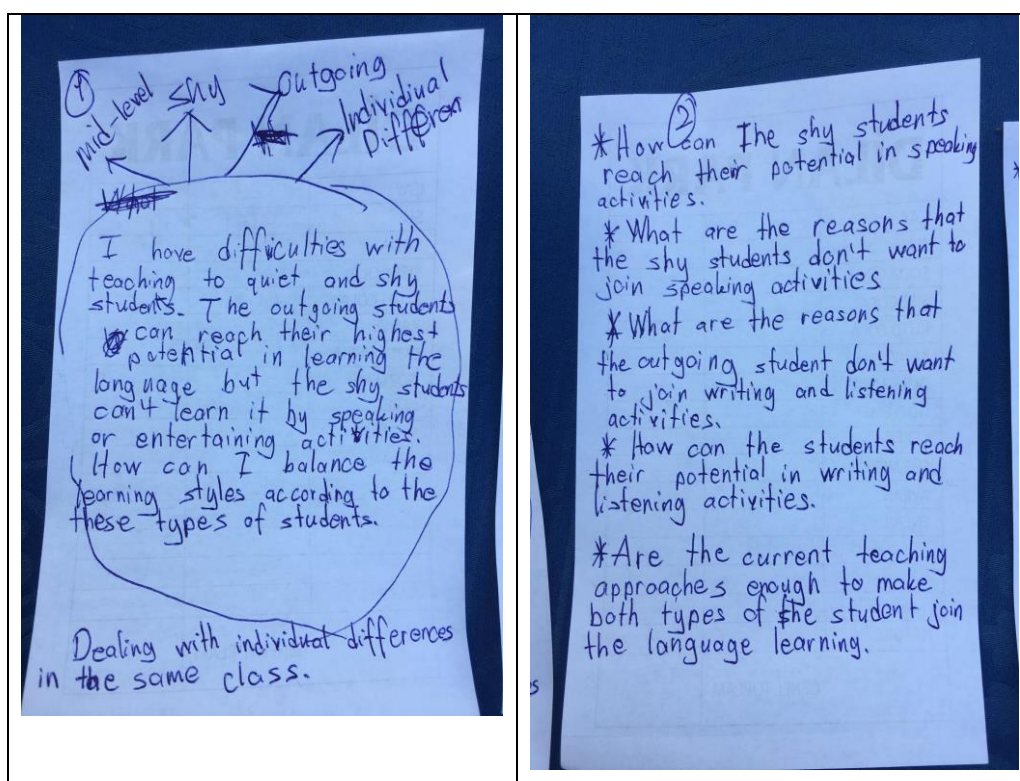 1
mid-level
shy
Outgoing
Individiual
Differen
What
I have difficulties with
teaching to quiet and shy
students. The outgoing students
can reach their highest
potential in learning the
language but the shy students
can't learn it by speaking
or entertaining activities.
How can I balance the
learning styles according to the
these types of students.
Dealing with individual differences
in the same class.
2
* How can The shy students
reach their potential in speaking
activities.
* What are the reasons that
the shy students don't want to
join speaking activities
* What are the reasons that
the outgoing student don't want
to join writing and listening
activities.
* How can the students reach
their potential in writing and
listening activities.
* Are the current teaching
approaches enough to make
both types of the student join
the language learning.